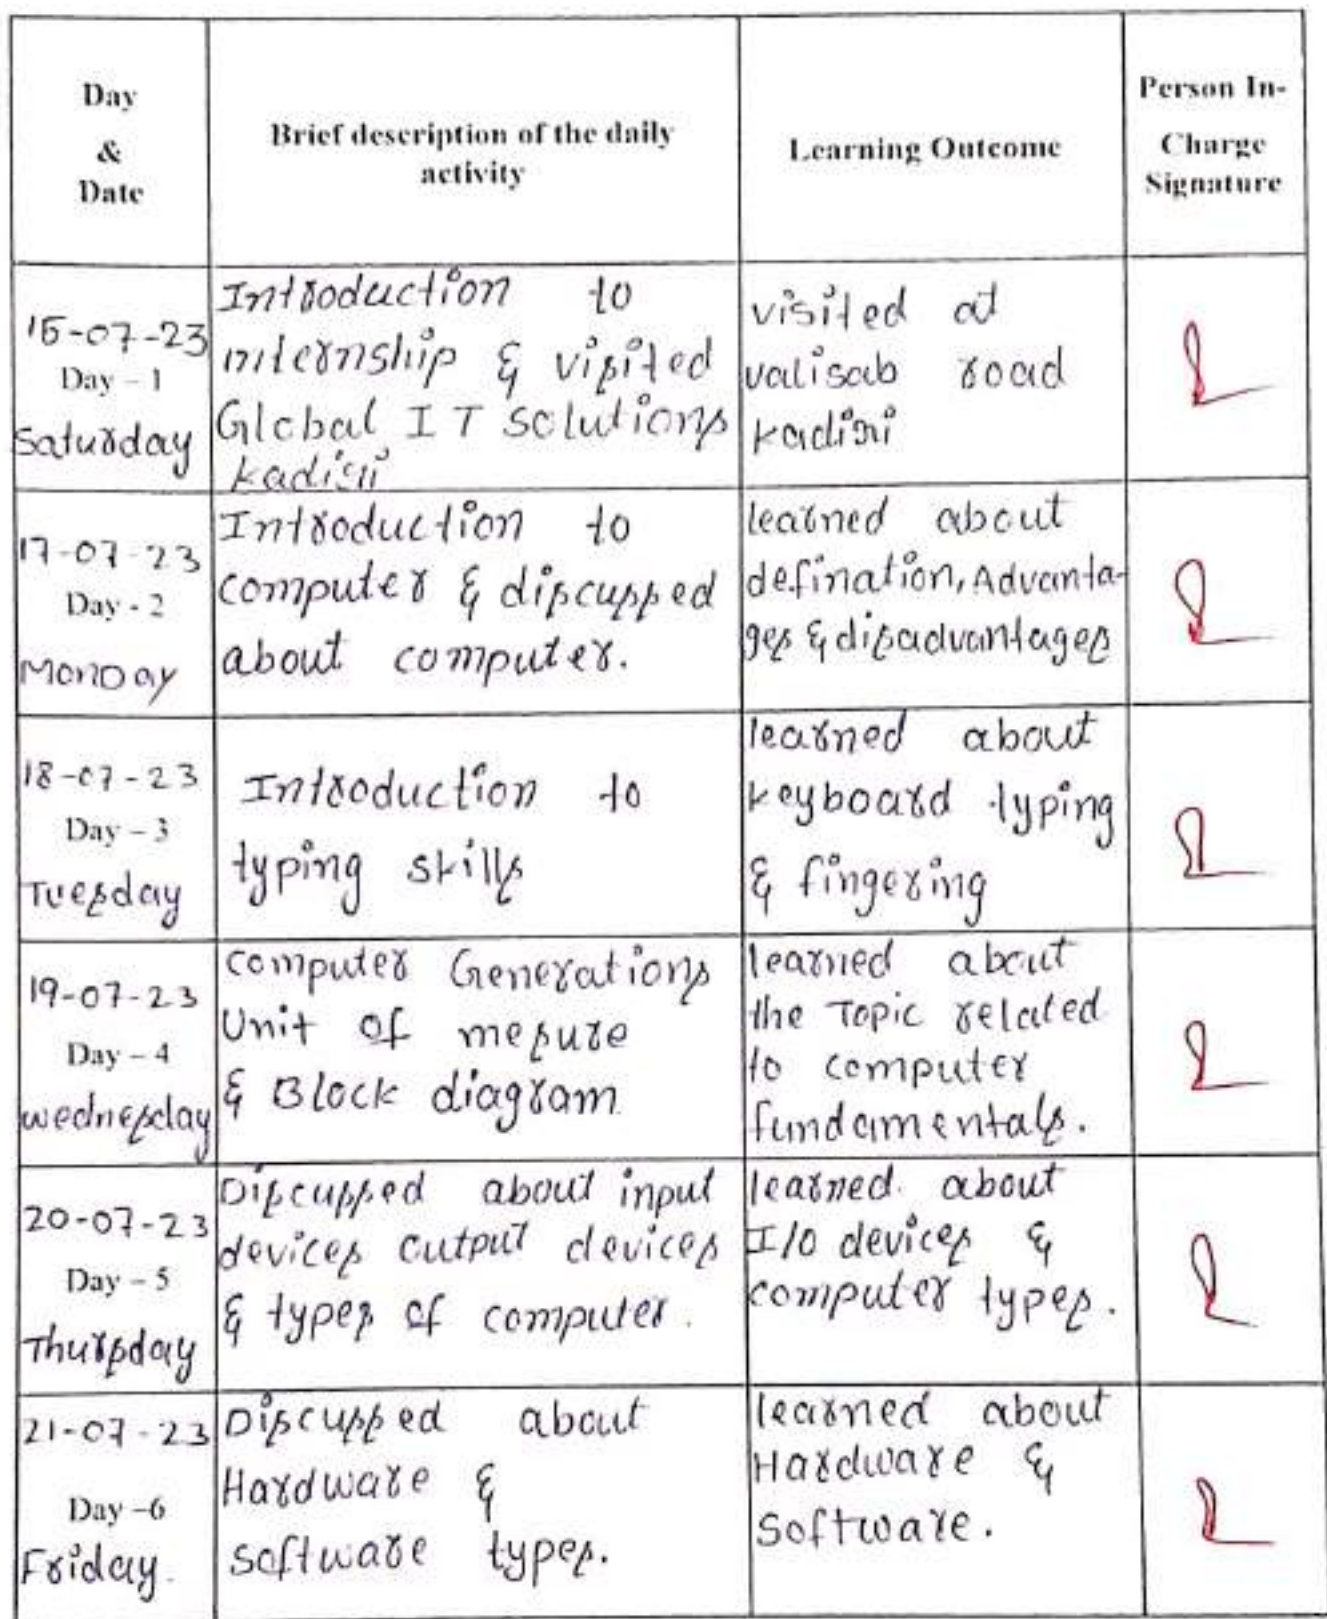 Day
&
Date
Brief description of the daily
activity
Learning Outcome
Person In-
Charge
Signature
15-07-23
Day – 1
Saturday
Introduction to
internship & visited
Global IT Solutions
kadiri
visited at
valisab road
kadiri
17-07-23
Day - 2
Monday
Introduction to
computer & discussed
about computer.
learned about
defination, Advanta-
ges & disadvantages
18-07-23
Day – 3
Tuesday
Introduction to
typing skills
learned about
keyboard typing
& fingering
19-07-23
Day – 4
wednesday
computer Generations
Unit of mesure
& Block diagram
learned about
the Topic related
to computer
fundamentals.
20-07-23
Day – 5
Thursday
Discussed about input
devices output devices
& types of computer.
learned about
I/O devices &
computer types.
21-07-23
Day –6
Friday.
Discussed about
Hardware &
software types.
learned about
Hardware &
Software.